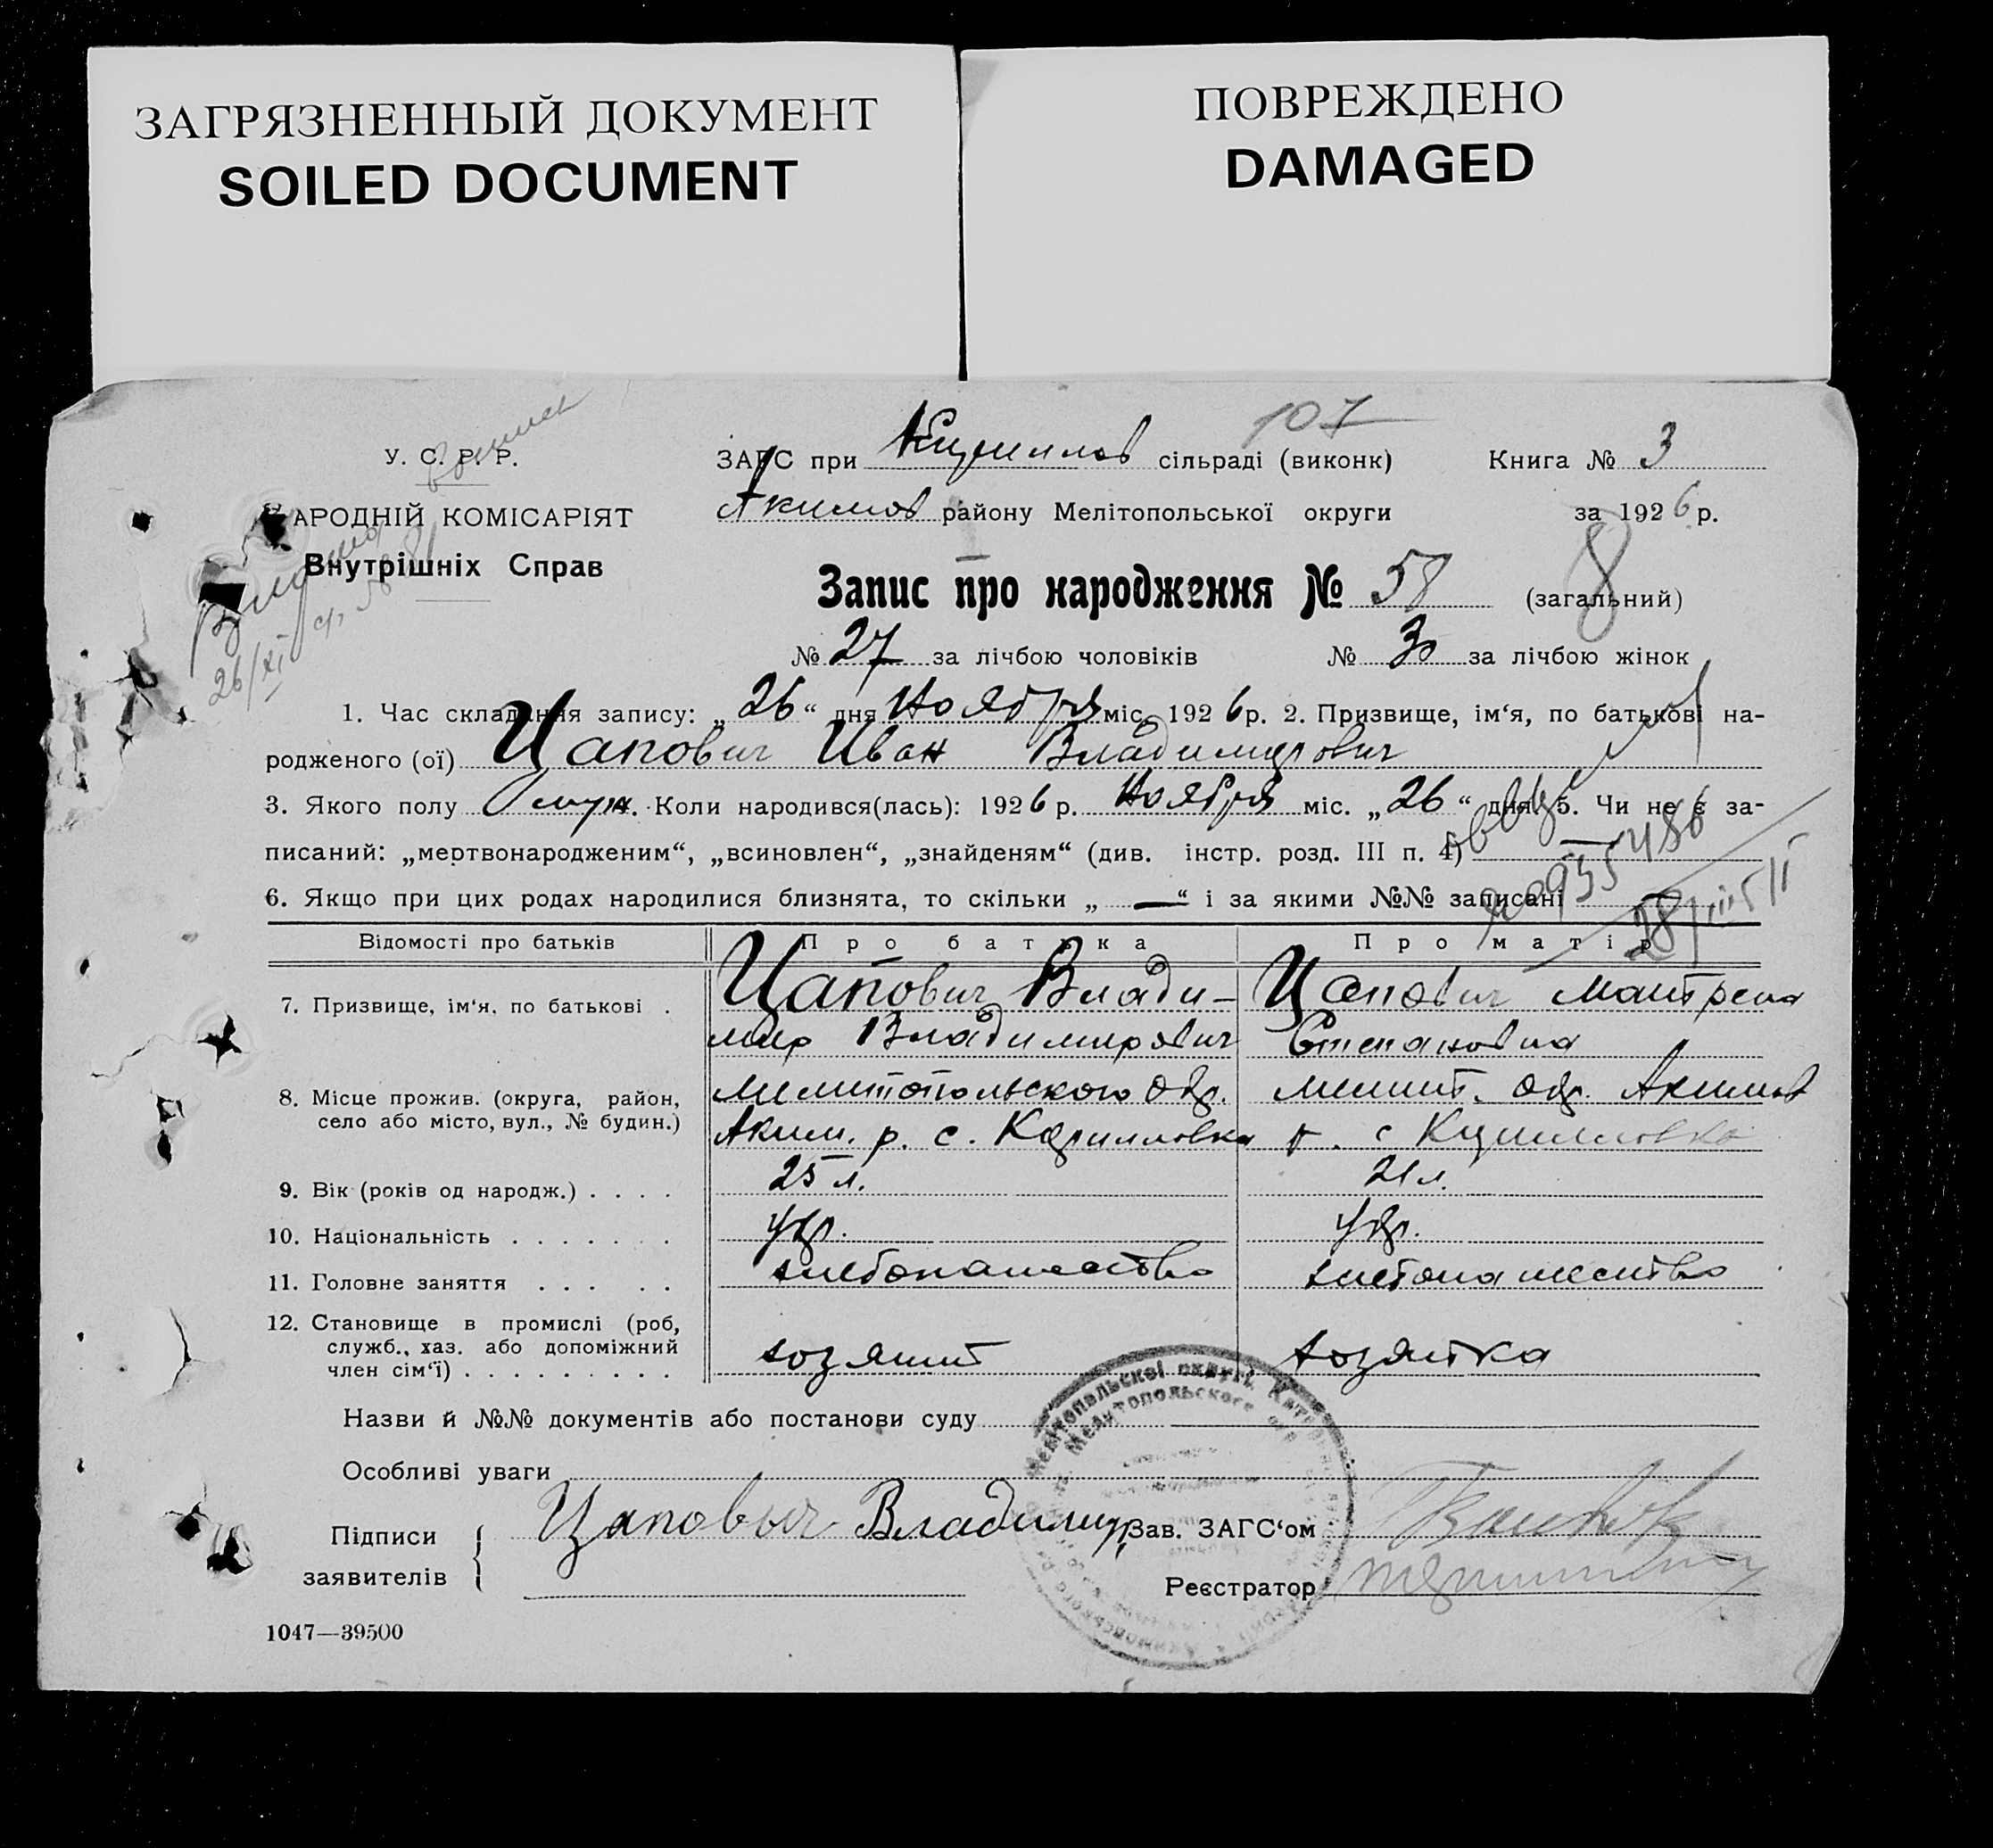 ЗАГРЯЗНЕННЫЙ ДОКУМЕНТ
SOILED DOCUMENT
ПОВРЕЖДЕНО
DAMAGED
У. С. Р. Р.
АРОДНІЙ КОМІСАРІЯТ
Внутрішніх Справ
107
ЗАГС при Кирилов сільраді (виконк) Книга № 3
Акимов району Мелітопольської округи за 1926 р.
Запис про народження № 58 (загальний)
8
№ 27 за лічбою чоловіків № 30 за лічбою жінок
26/XI
1. Час складання запису: „26“ дня Ноября міс. 1926 р. 2. Призвище, ім‘я, по батькові на-
родженого (ої) Цапович Иван Владимирович
3. Якого полу муж. Коли народився(лась): 1926 р. Ноября міс. „26“ дня. 5. Чи не є за-
писаний: „мертвонародженим“, „всиновлен“, „знайденям“ (див. інстр. розд. III п. 4) —
6. Якщо при цих родах народилися близнята, то скільки „ — “ і за якими №№ записані
Відомості про батьків Про батька Про матір
7. Призвище, ім‘я, по батькові . Цапович Влади- Цапович Матрена
мир Владимирович Степановна
8. Місце прожив. (округа, район, Мелитопольского окр. Мелит. окр. Акимов
село або місто, вул., № будин.) Аким. р. с. Кирилловка р. с Кирилловка
9. Вік (років од народж.) . . . . 25 л. 21 л.
10. Національність . . . . . . . укр. укр.
11. Головне заняття . . . . . хлебопашество хлебопашество
12. Становище в промислі (роб,
служб., хаз. або допоміжний хозяин хозяйка
член сім‘ї) . . . . . . . . .
Назви й №№ документів або постанови суду
Особливі уваги
Підписи Цапович Владимир Зав. ЗАГС‘ом
заявителів Реєстратор
1047—39500